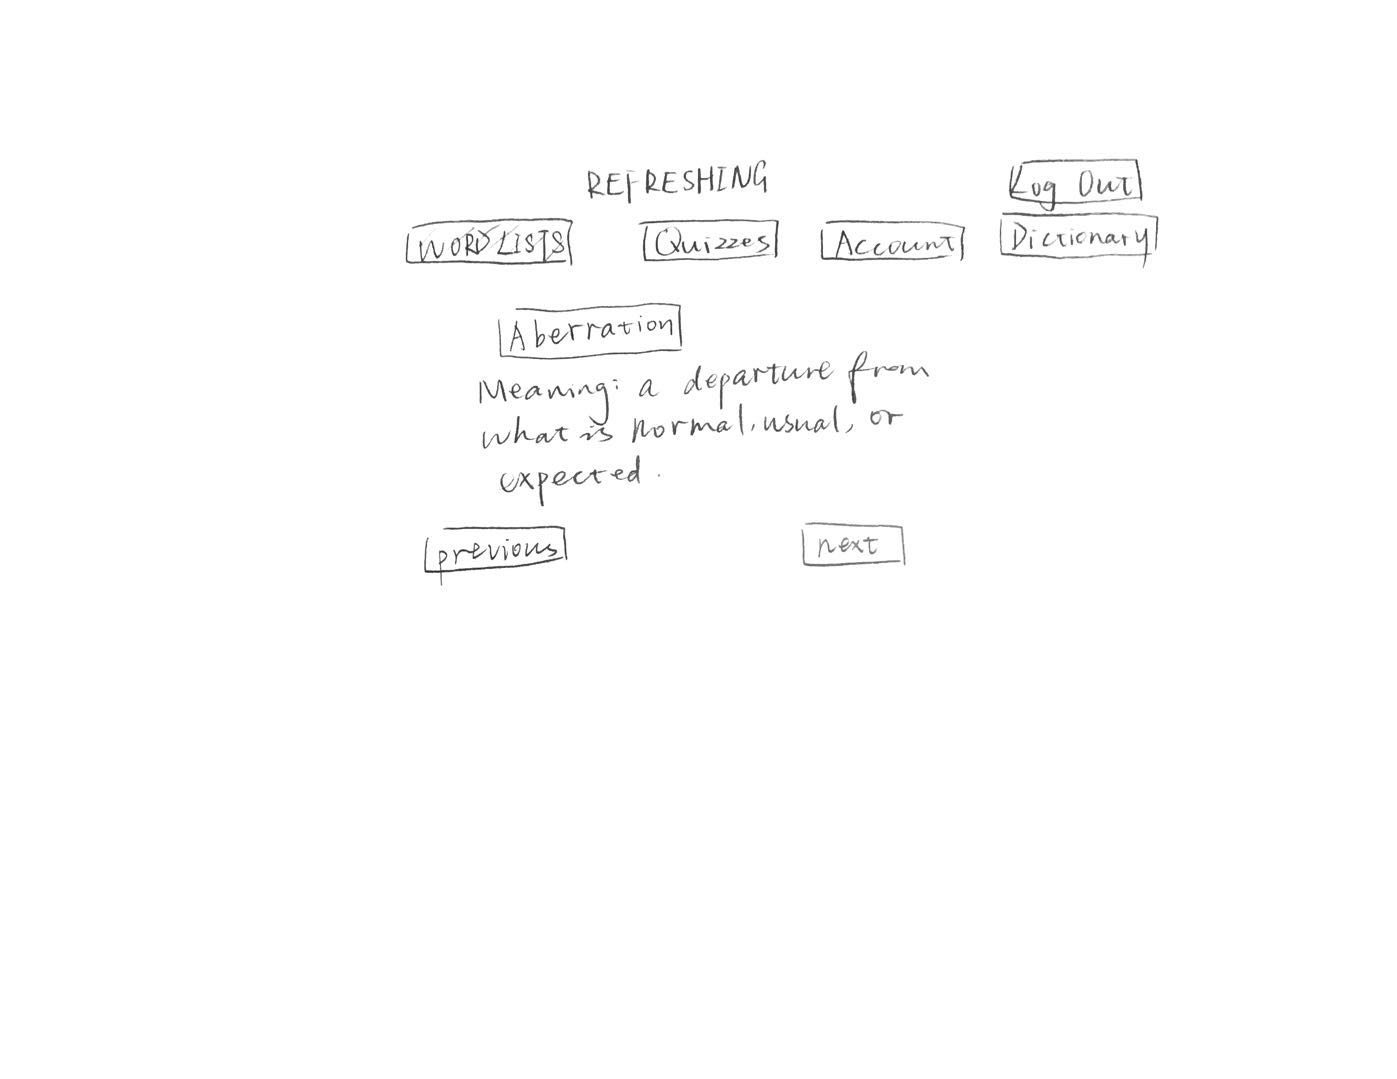 REFRESHING
Log Out
WORD LISTS
Quizzes
Account
Dictionary
Aberration
Meaning: a departure from
what is normal, usual, or
expected.
previous
next